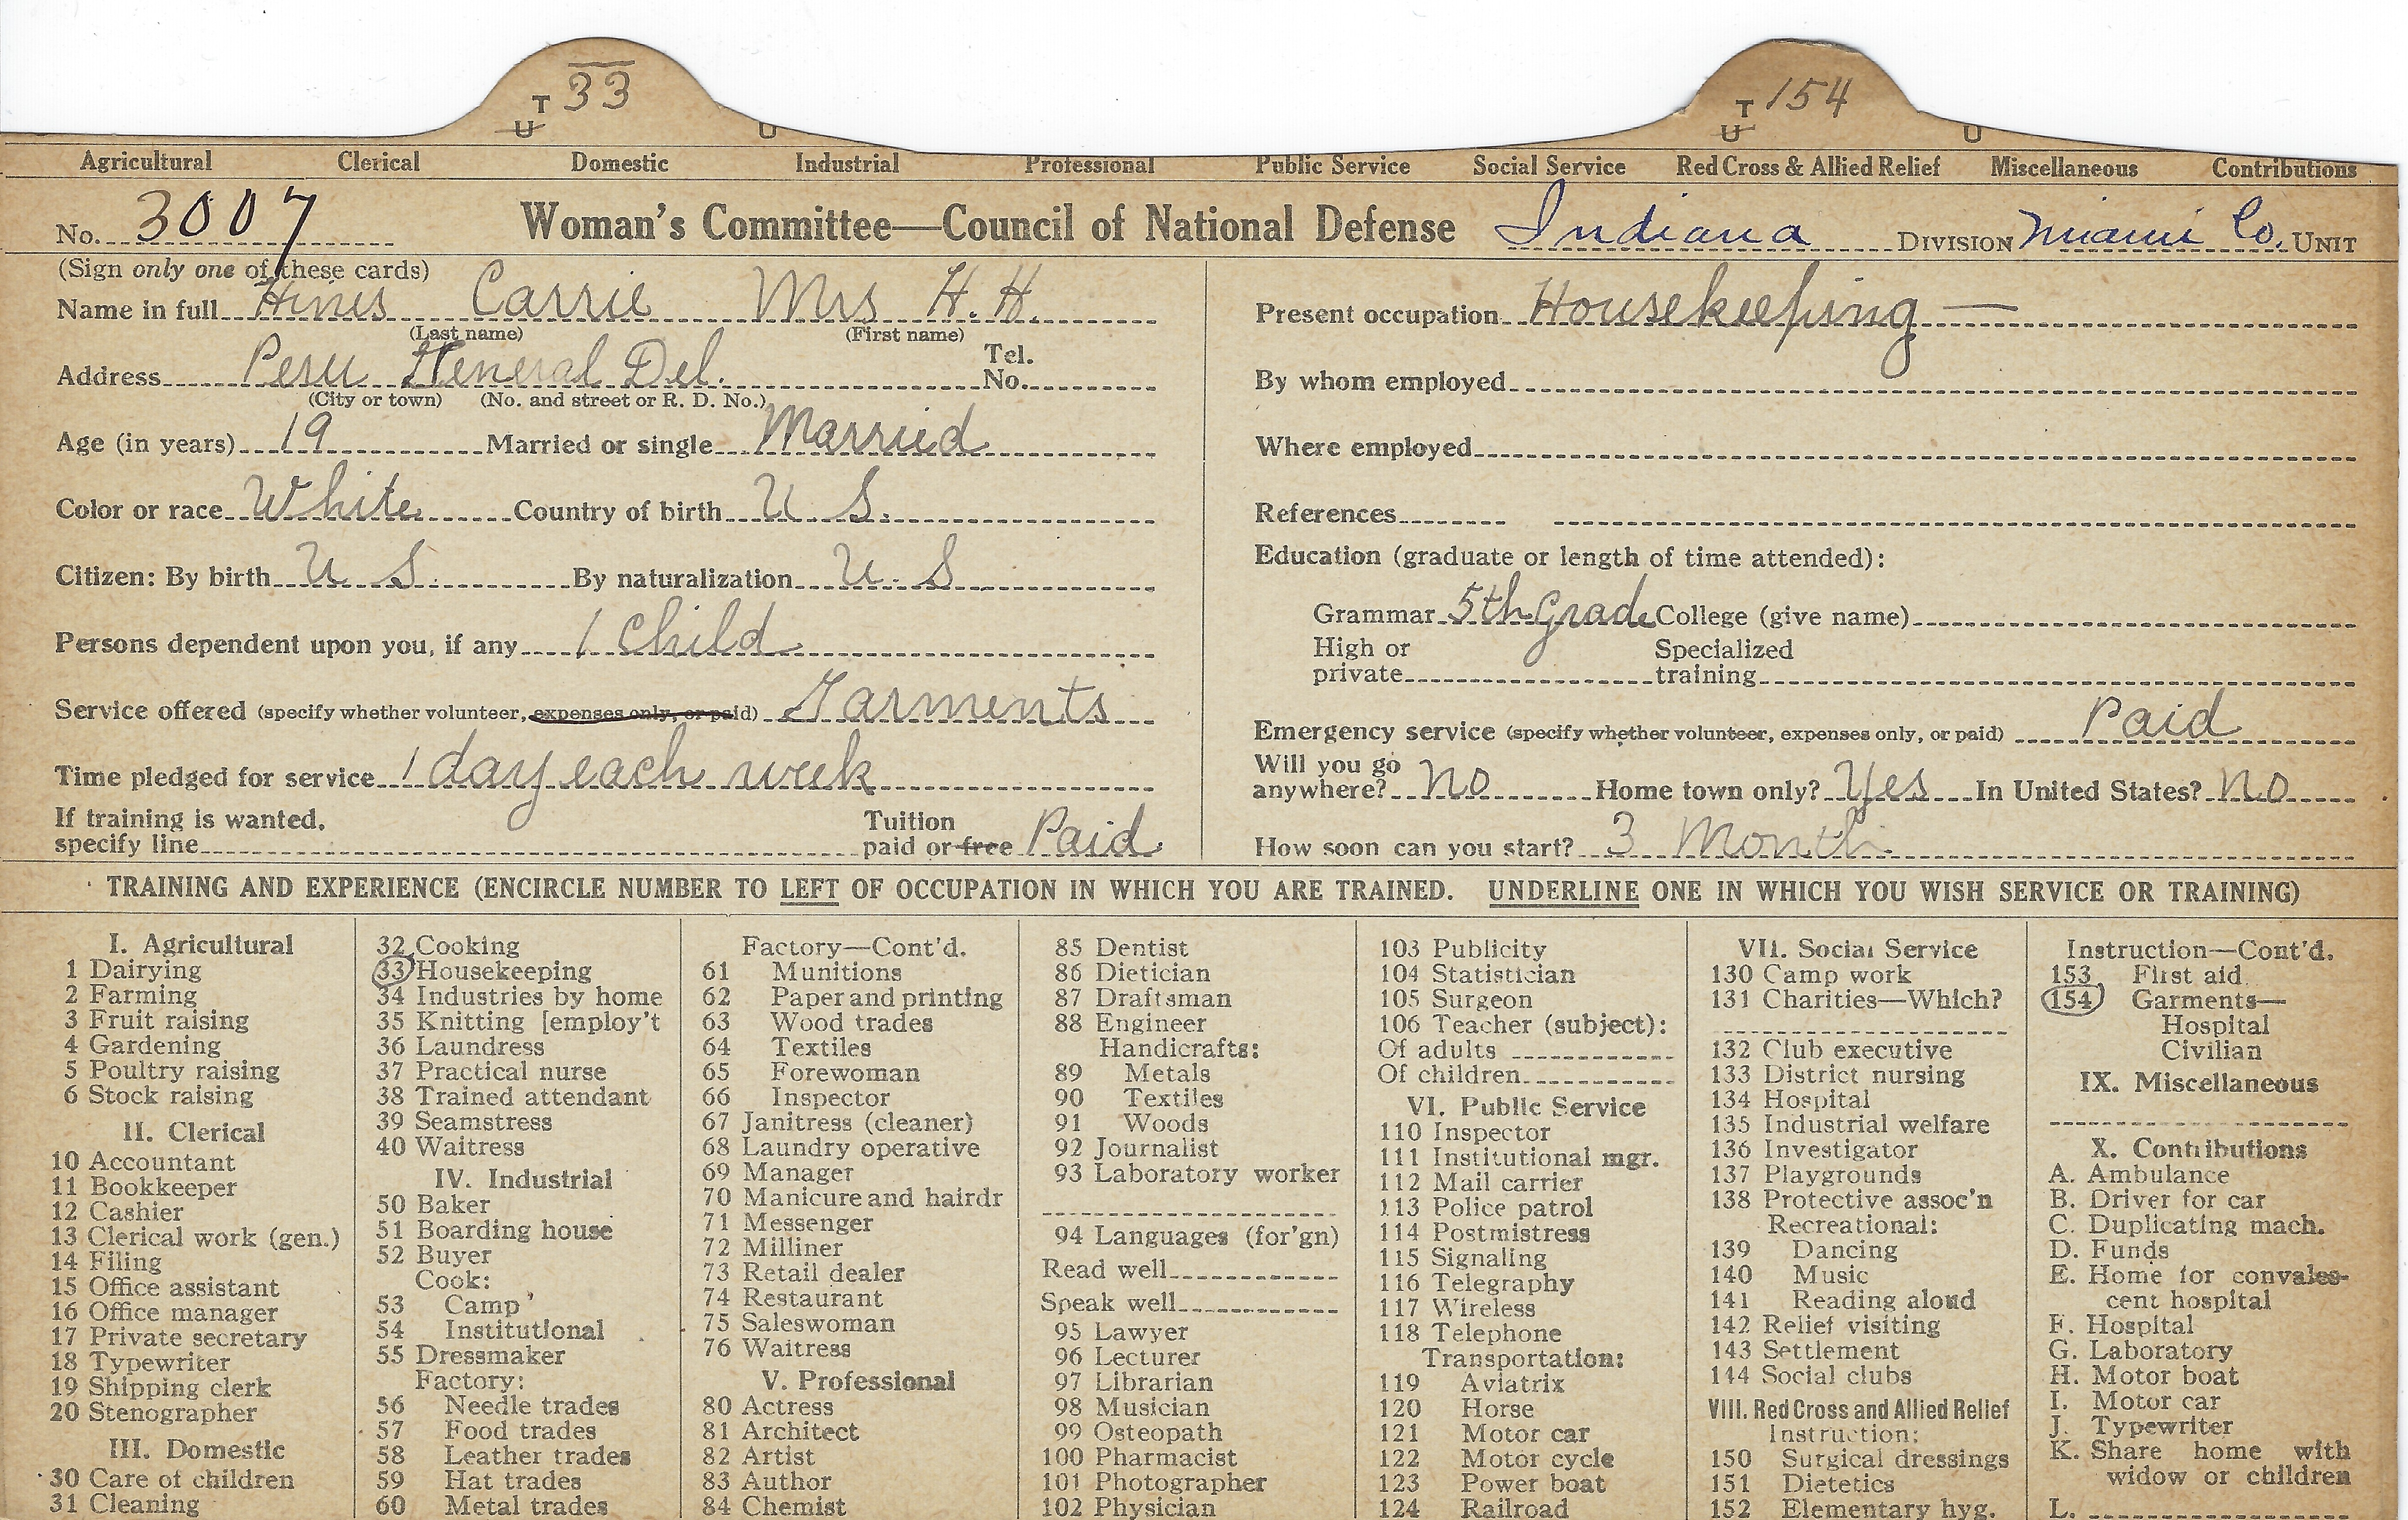 T 33
U U
T 154
U U
Agricultural Clerical Domestic Industrial Professional Public Service Social Service Red Cross & Allied Relief Miscellaneous Contributions
No. 3007 Woman's Committee—Council of National Defense Indiana DIVISION Miami Co. UNIT
(Sign only one of these cards)
Name in full Hines Carrie Mrs H. H.
(Last name) (First name)
Address Peru General Del. Tel. No.
(City or town) (No. and street or R. D. No.)
Age (in years) 19 Married or single Married
Color or race White Country of birth U S.
Citizen: By birth U S. By naturalization U. S
Persons dependent upon you, if any 1 Child
Service offered (specify whether volunteer, expenses only, or paid) Garments
Time pledged for service 1 day each week
If training is wanted, specify line Tuition paid or free Paid
Present occupation Housekeeping —
By whom employed
Where employed
References
Education (graduate or length of time attended):
Grammar 5th Grade College (give name)
High or private Specialized training
Emergency service (specify whether volunteer, expenses only, or paid) Paid
Will you go anywhere? no Home town only? Yes In United States? no
How soon can you start? 3 Month
TRAINING AND EXPERIENCE (ENCIRCLE NUMBER TO LEFT OF OCCUPATION IN WHICH YOU ARE TRAINED. UNDERLINE ONE IN WHICH YOU WISH SERVICE OR TRAINING)
I. Agricultural
1 Dairying
2 Farming
3 Fruit raising
4 Gardening
5 Poultry raising
6 Stock raising
II. Clerical
10 Accountant
11 Bookkeeper
12 Cashier
13 Clerical work (gen.)
14 Filing
15 Office assistant
16 Office manager
17 Private secretary
18 Typewriter
19 Shipping clerk
20 Stenographer
III. Domestic
30 Care of children
31 Cleaning
32 Cooking
33 Housekeeping
34 Industries by home
35 Knitting [employ't
36 Laundress
37 Practical nurse
38 Trained attendant
39 Seamstress
40 Waitress
IV. Industrial
50 Baker
51 Boarding house
52 Buyer
Cook:
53 Camp
54 Institutional
55 Dressmaker
Factory:
56 Needle trades
57 Food trades
58 Leather trades
59 Hat trades
60 Metal trades
Factory—Cont'd.
61 Munitions
62 Paper and printing
63 Wood trades
64 Textiles
65 Forewoman
66 Inspector
67 Janitress (cleaner)
68 Laundry operative
69 Manager
70 Manicure and hairdr
71 Messenger
72 Milliner
73 Retail dealer
74 Restaurant
75 Saleswoman
76 Waitress
V. Professional
80 Actress
81 Architect
82 Artist
83 Author
84 Chemist
85 Dentist
86 Dietician
87 Draftsman
88 Engineer
Handicrafts:
89 Metals
90 Textiles
91 Woods
92 Journalist
93 Laboratory worker
94 Languages (for'gn)
Read well
Speak well
95 Lawyer
96 Lecturer
97 Librarian
98 Musician
99 Osteopath
100 Pharmacist
101 Photographer
102 Physician
103 Publicity
104 Statistician
105 Surgeon
106 Teacher (subject):
Of adults
Of children
VI. Public Service
110 Inspector
111 Institutional mgr.
112 Mail carrier
113 Police patrol
114 Postmistress
115 Signaling
116 Telegraphy
117 Wireless
118 Telephone
Transportation:
119 Aviatrix
120 Horse
121 Motor car
122 Motor cycle
123 Power boat
124 Railroad
VII. Social Service
130 Camp work
131 Charities—Which?
132 Club executive
133 District nursing
134 Hospital
135 Industrial welfare
136 Investigator
137 Playgrounds
138 Protective assoc'n
Recreational:
139 Dancing
140 Music
141 Reading aloud
142 Relief visiting
143 Settlement
144 Social clubs
VIII. Red Cross and Allied Relief
Instruction:
150 Surgical dressings
151 Dietetics
152 Elementary hyg.
Instruction—Cont'd.
153 First aid
154 Garments—
Hospital
Civilian
IX. Miscellaneous
X. Contributions
A. Ambulance
B. Driver for car
C. Duplicating mach.
D. Funds
E. Home for convales-
cent hospital
F. Hospital
G. Laboratory
H. Motor boat
I. Motor car
J. Typewriter
K. Share home with
widow or children
L.